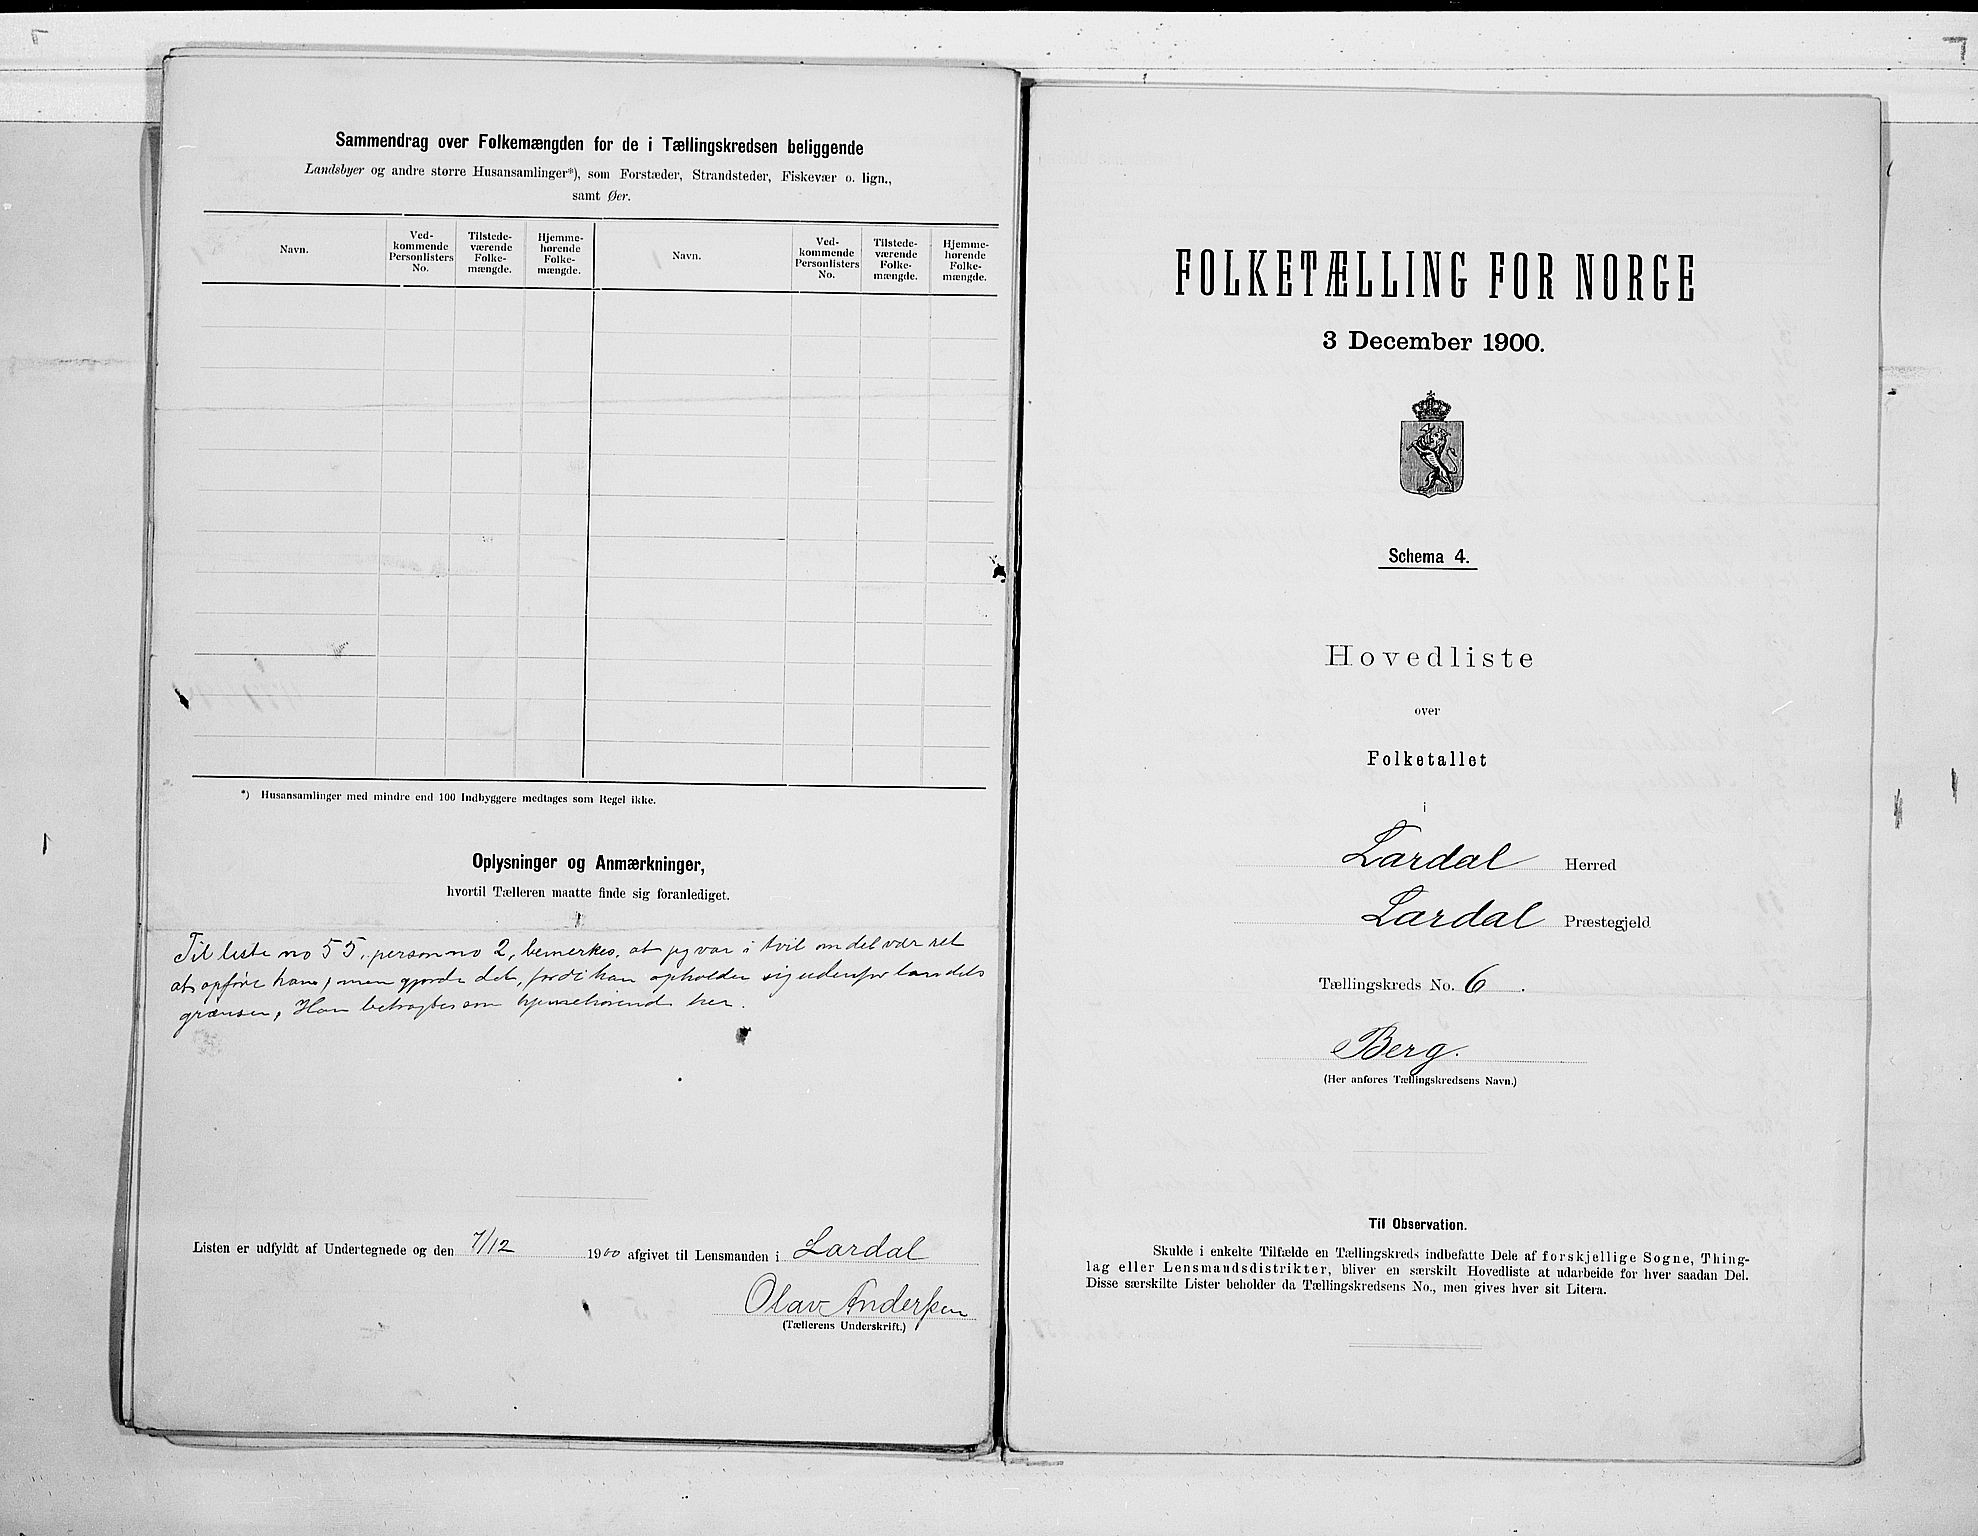 Sammendrag over Folkemængden for de i Tællingskredsen beliggende
Landsbyer og andre større Husansamlinger*), som Forstæder, Strandsteder, Fiskevær o. lign.,
samt Øer.
Navn.
Ved-
kommende
Personlisters
No.
Tilstede-
værende
Folke-
mængde.
Hjemme-
hørende
Folke-
mængde.
Navn.
Ved-
kommende
Personlisters
No.
Tilstede-
værende
Folke-
mængde.
Hjemme-
hørende
Folke-
mængde.
*) Husansamlinger med mindre end 100 Indbyggere medtages som Regel ikke.
Oplysninger og Anmærkninger,
hvortil Tælleren maatte finde sig foranlediget.
Til liste no 55, person no 2, bemerkes, at jeg var i tvil om det var ret
at opføre ham, men gjorde det, fordi han opholder sig udenfor landets
grænser, Han betragtes som hjemehörend her.
Listen er udfyldt af Undertegnede og den 7/12 1900 afgivet til Lensmanden i Lardal
Olav Anderssen
(Tællerens Underskrift.)
FOLKETÆLLING FOR NORGE
3 December 1900.
Schema 4.
Hovedliste
over
Folketallet
i
Lardal Herred
Lardal Præstegjeld
Tællingskreds No. 6.
Berg.
(Her anføres Tællingskredsens Navn.)
Til Observation.
Skulde i enkelte Tilfælde en Tællingskreds indbefatte Dele af forskjellige Sogne, Thing-
lag eller Lensmandsdistrikter, bliver en særskilt Hovedliste at udarbeide for hver saadan Del.
Disse særskilte Lister beholder da Tællingskredsens No., men gives hver sit Litera.